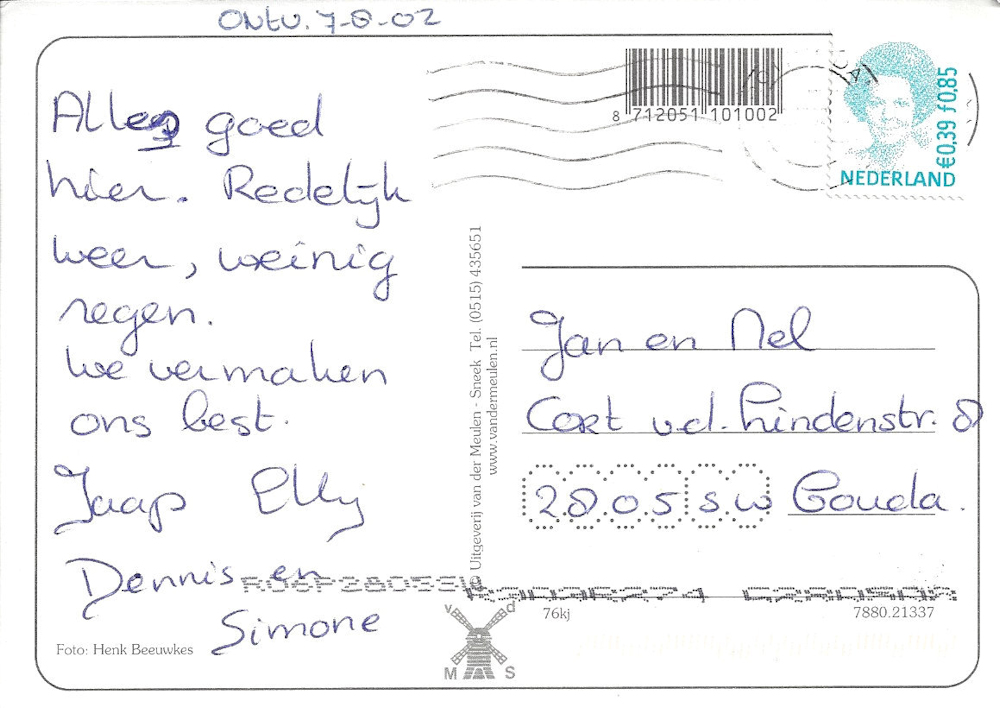 ontv. 7-8-02
8 712051 101002
€0,39 ƒ0,85
NEDERLAND
Alles goed
hier. Redelijk
weer, weinig
regen.
We vermaken
ons best.
Jaap Elly
Dennis en
Simone
Foto: Henk Beeuwkes
© Uitgeverij van der Meulen - Sneek Tel. (0515) 435651
www.vandermeulen.nl
Jan en Nel
Cort v.d. Lindenstr. 8
2805 SW Gouda.
v d
M S
76kj
7880.21337